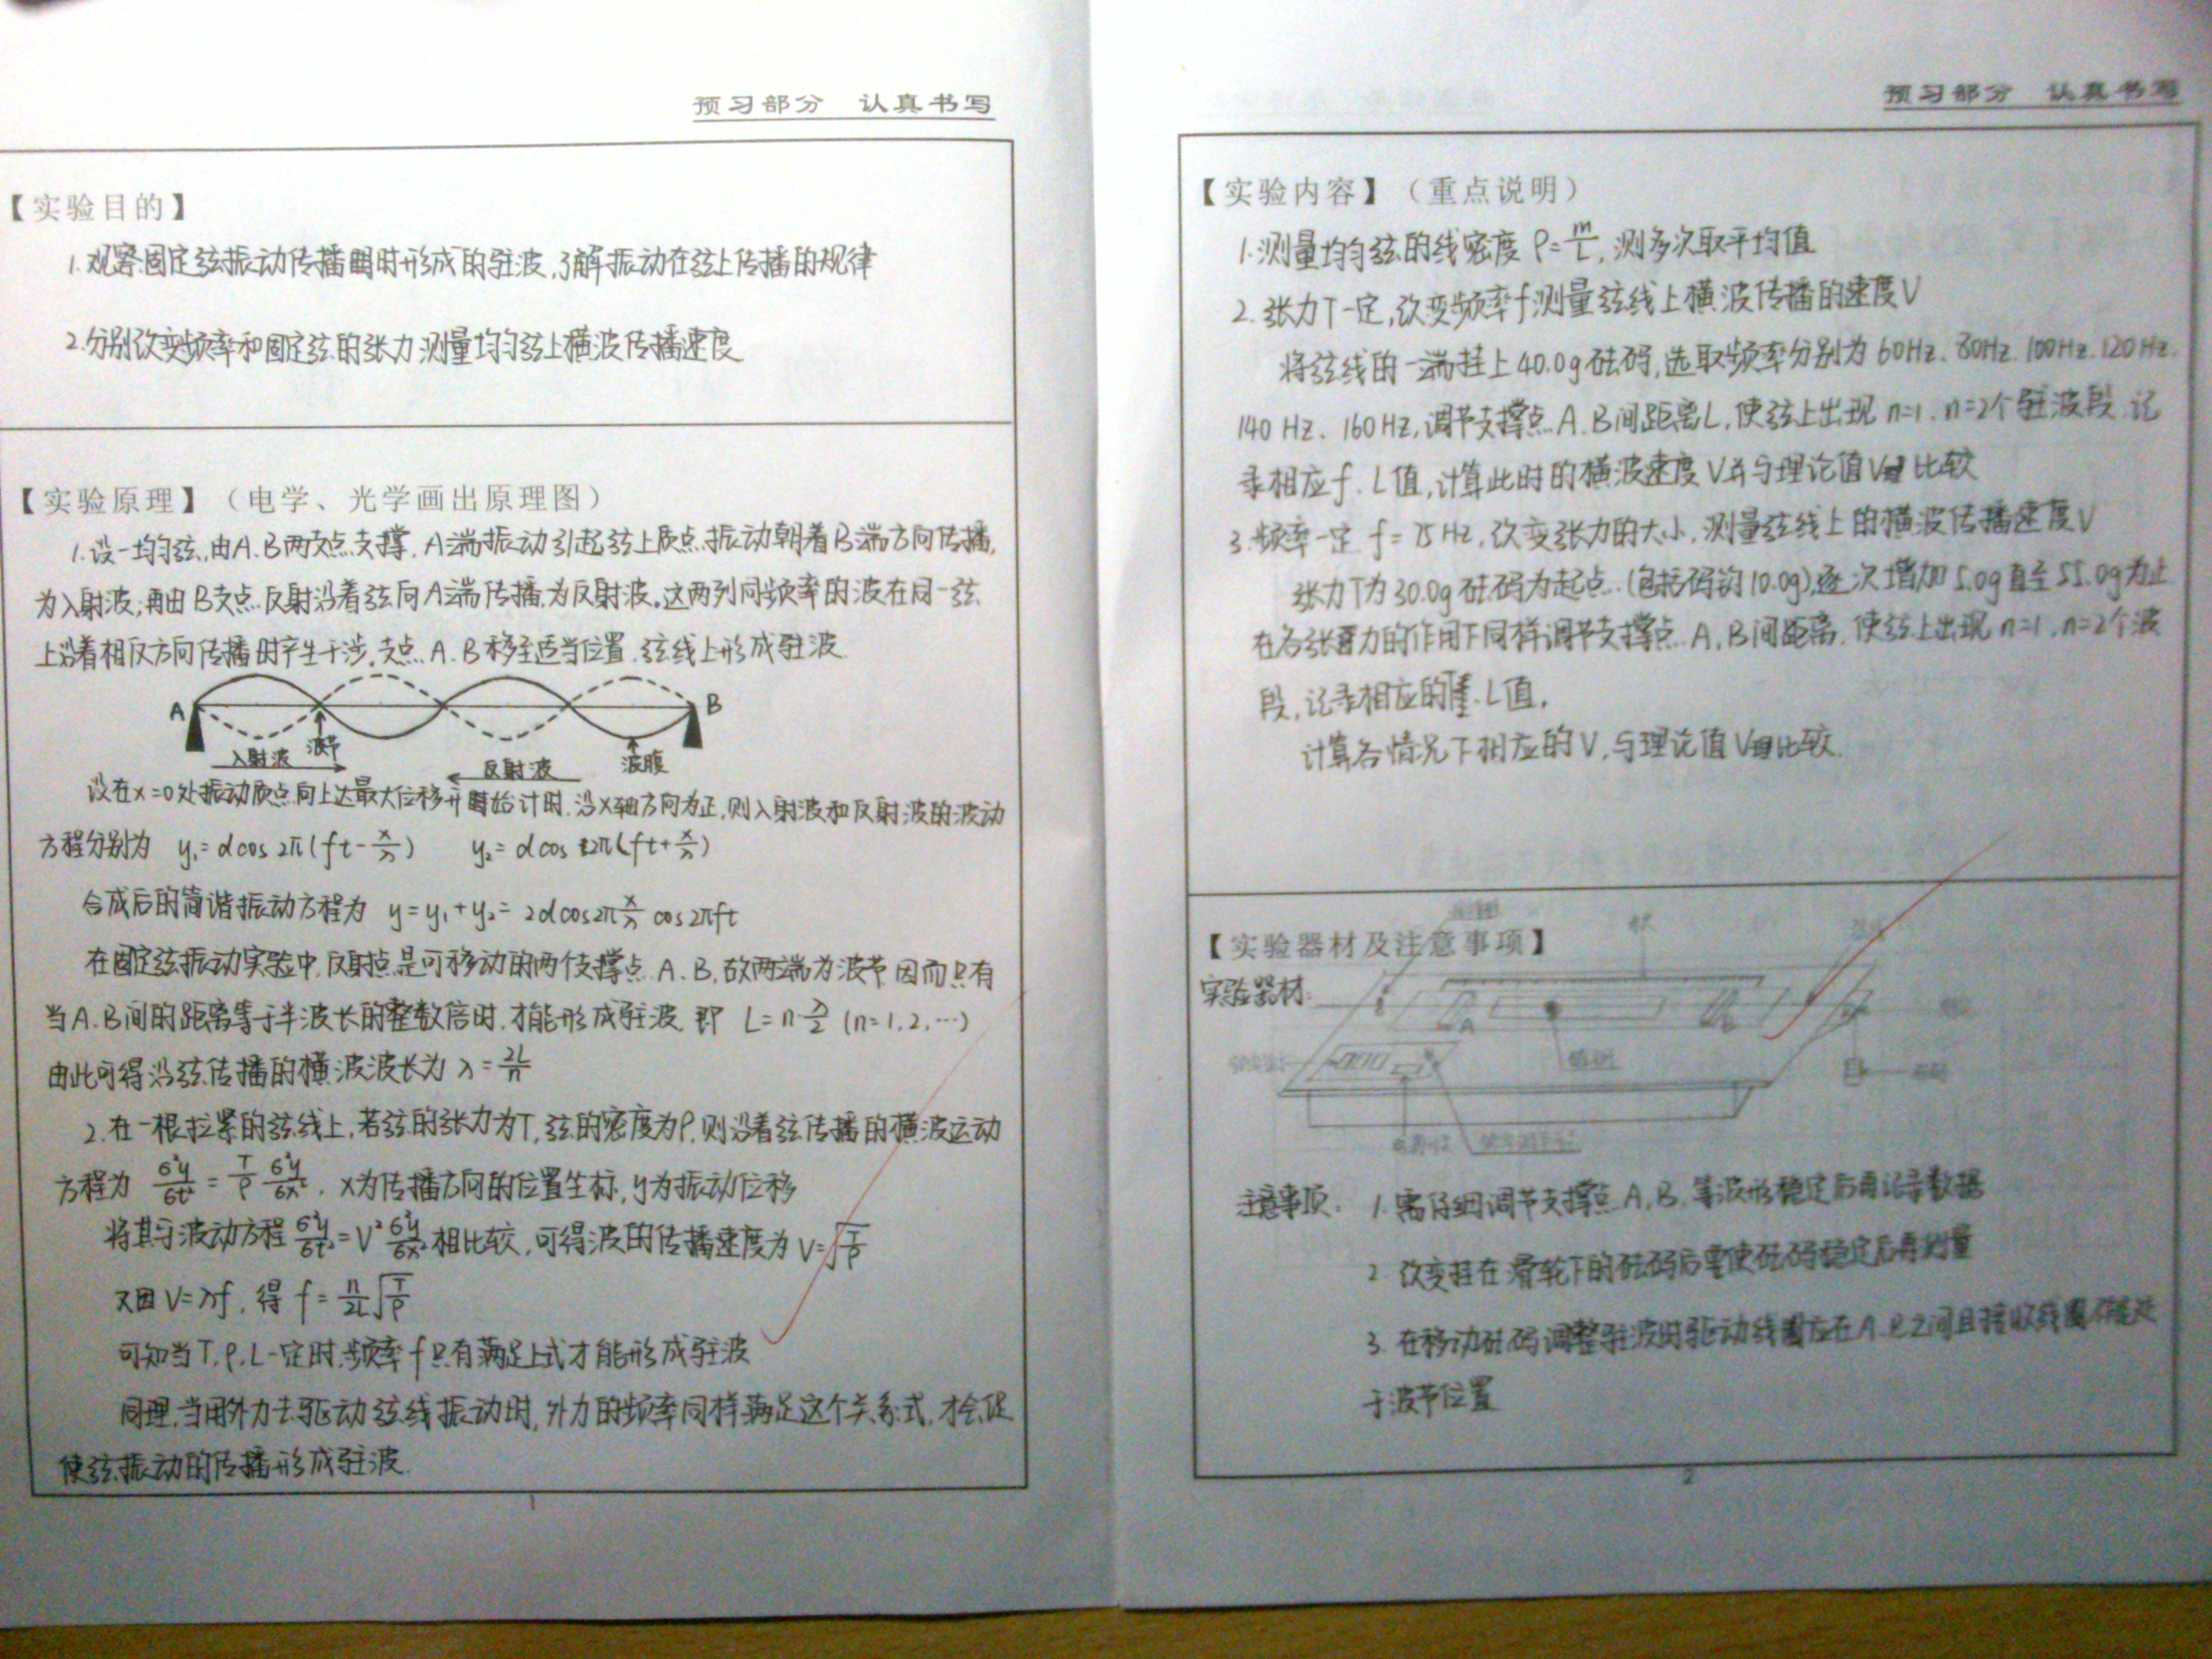 预习部分 认真书写
【实验目的】
1.观察固定弦振动传播时形成的驻波,了解振动在弦上传播的规律
2.分别改变频率和固定弦的张力,测量均匀弦上横波传播速度
【实验原理】(电学、光学画出原理图)
1.设一均匀弦,由A.B两支点支撑,A端振动引起弦上质点振动朝着B端方向传播,
为入射波,再由B支点反射沿着弦向A端传播,为反射波。这两列同频率的波在同一弦
上沿着相反方向传播时产生干涉,支点A.B移至适当位置,弦线上形成驻波
A B
入射波 波节 反射波 波腹
设在x=0处振动质点向上达最大位移时开始计时,沿X轴方向为正,则入射波和反射波的波动
方程分别为 y₁=αcos2π(ft-x/λ) y₂=αcos2π(ft+x/λ)
合成后的简谐振动方程为 y=y₁+y₂=2αcos2πx/λ cos2πft
在固定弦振动实验中,反射点是可移动的两个支撑点A.B,故两端为波节,因而只有
当A.B间的距离等于半波长的整数倍时,才能形成驻波,即 L=n·λ/2 (n=1,2,…)
由此可得沿弦传播的横波波长为 λ=2L/n
2.在一根拉紧的弦线上,若弦的张力为T,弦的密度为ρ,则沿着弦传播的横波运动
方程为 б²y/бt²=T/ρ б²y/бx²,x为传播方向的位置坐标,y为振动位移
将其与波动方程 б²y/бt²=V² б²y/бx² 相比较,可得波的传播速度为 V=√(T/ρ)
又因V=λf,得 f=n/2L √(T/ρ)
可知当T.ρ.L一定时,频率f只有满足上式才能形成驻波
同理,当用外力去驱动弦线振动时,外力的频率同样满足这个关系式,才会促
使弦振动的传播形成驻波.
1
预习部分 认真书写
【实验内容】(重点说明)
1.测量均匀弦的线密度 ρ=m/L,测多次取平均值
2.张力T一定,改变频率f测量弦线上横波传播的速度V
将弦线的一端挂上40.0g砝码,选取频率分别为60Hz、80Hz.100Hz.120Hz.
140Hz、160Hz,调节支撑点A.B间距离L,使弦上出现n=1.n=2个驻波段,记
录相应f.L值,计算此时的横波速度V并与理论值V比较
3.频率一定f=75Hz,改变张力的大小,测量弦线上的横波传播速度V
张力T为30.0g砝码为起点(包括码钩10.0g),逐次增加5.0g直至55.0g为止
在各张力的作用下同样调节支撑点A.B间距离,使弦上出现n=1.n=2个波
段,记录相应的L值,
计算各情况下相应的V,与理论值V比较.
【实验器材及注意事项】
实验器材:
注意事项: 1.需仔细调节支撑点A.B,等波形稳定后再记录数据
2.改变挂在滑轮下的砝码后要使砝码稳定后再测量
3.在移动砝码调整驻波时驱动线圈应在A.B之间且接收线圈不能处
于波节位置
2